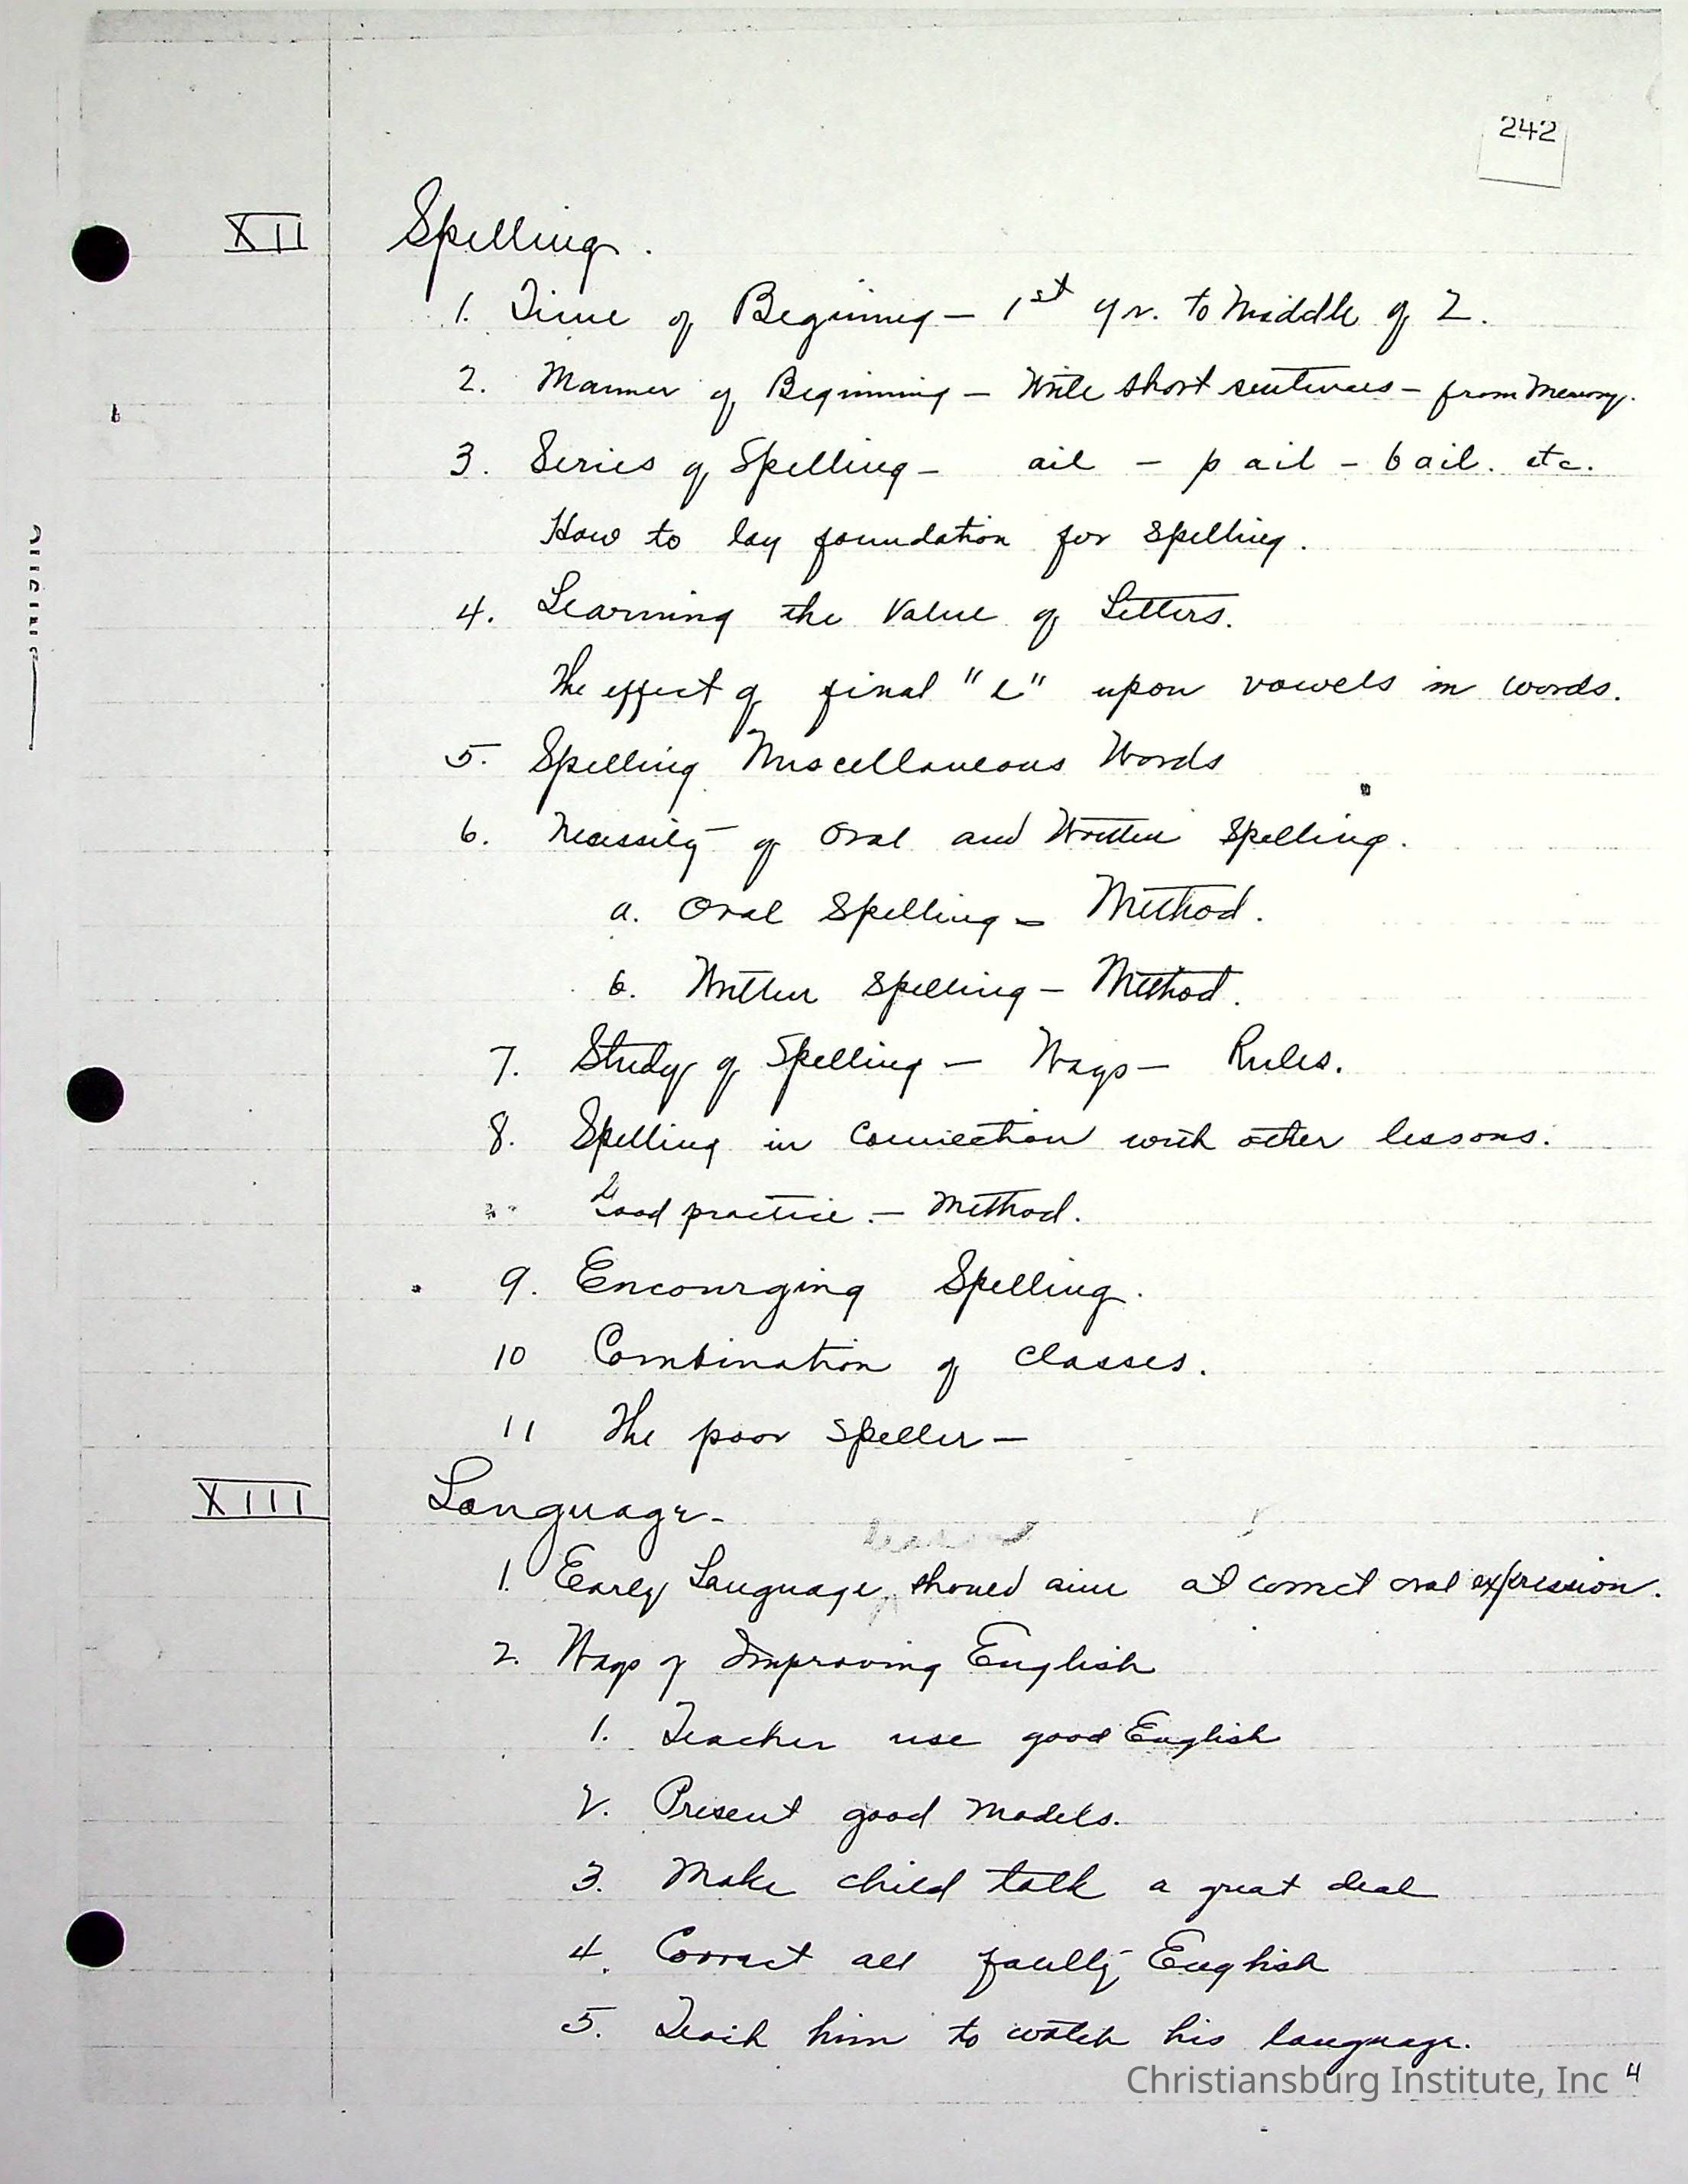 242
XII Spelling.
1. Time of Beginning — 1st yr. to Middle of 2.
2. Manner of Beginning — Write short sentences — from Memory.
3. Series of Spelling — ail — pail — bail. etc.
How to lay foundation for spelling.
4. Learning the Value of Letters.
The effect of final "e" upon vowels in words.
5. Spelling Miscellaneous Words
6. Necessity of Oral and Written Spelling.
a. Oral Spelling — Method.
b. Written Spelling — Method.
7. Study of Spelling — Ways — Rules.
8. Spelling in Connection with other lessons.
Good practice. — Method.
9. Encourging Spelling.
10 Combination of classes.
11 The poor speller —
XIII Language -
1. Early Language should aim at correct oral expression.
2. Ways of Improving English
1. Teacher use good English
2. Present good models.
3. Make child talk a great deal
4. Correct all faulty English
5. Teach him to watch his language.
Christiansburg Institute, Inc 4